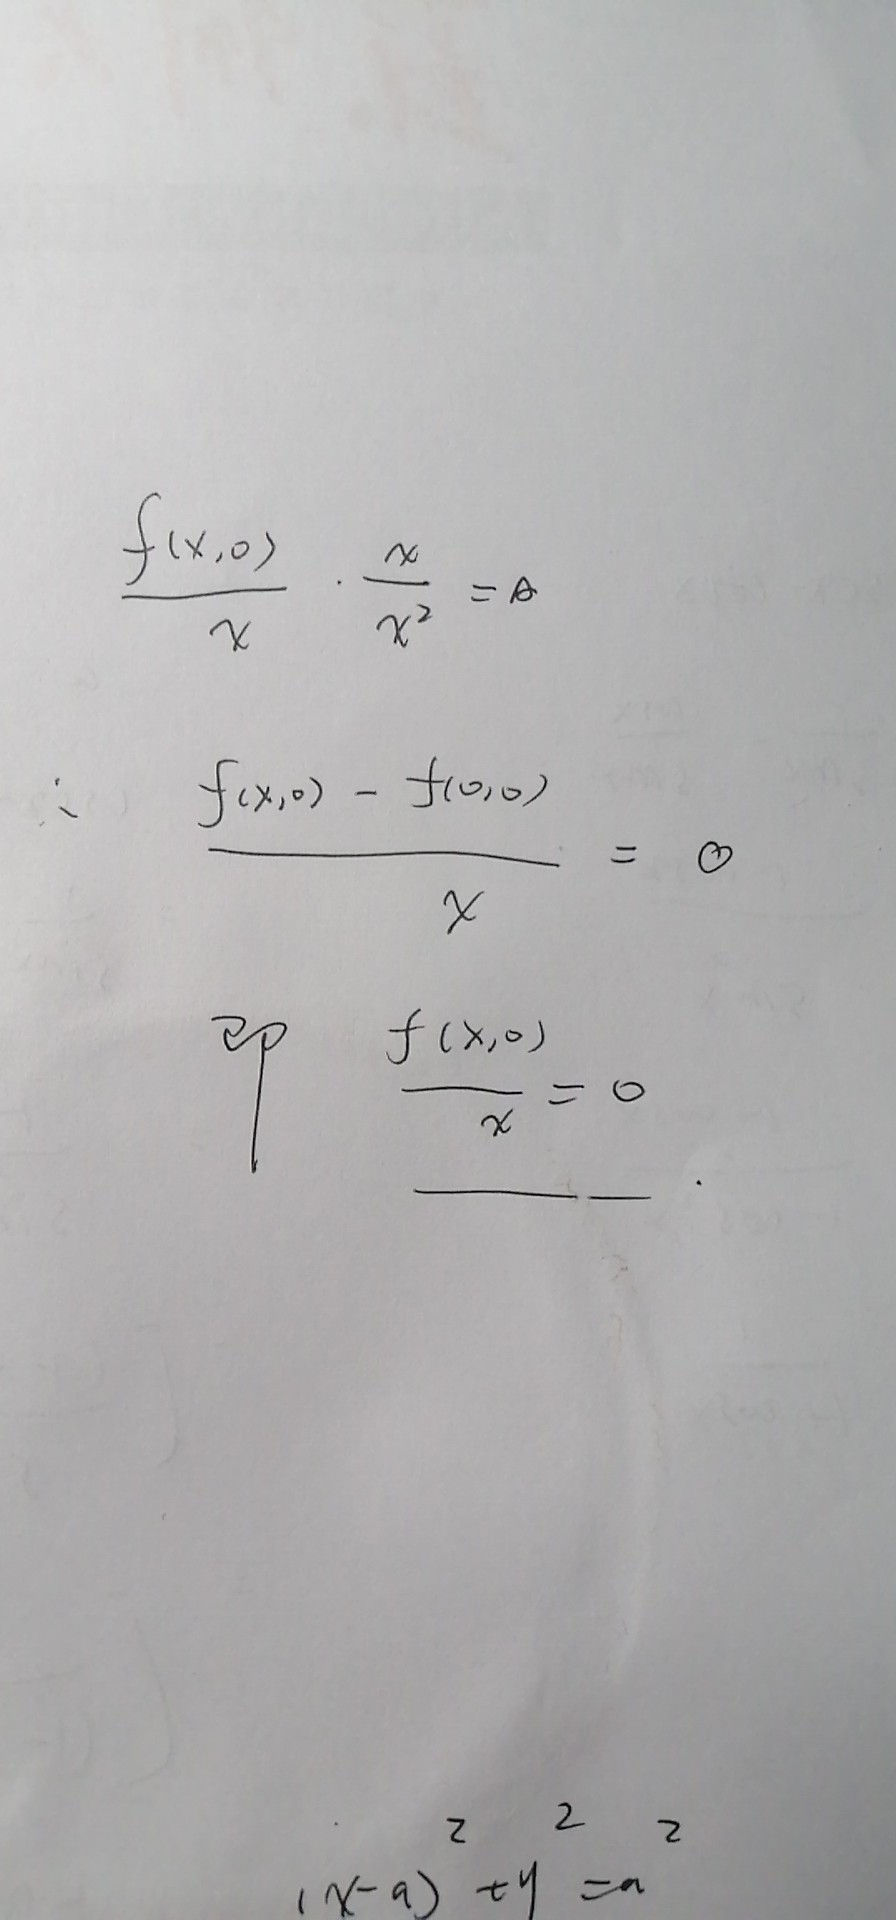 f(x,0)/x · x/x² = A
∴ (f(x,0) - f(0,0))/x = 0
即 f(x,0)/x = 0
(x-a)² + y² = a²